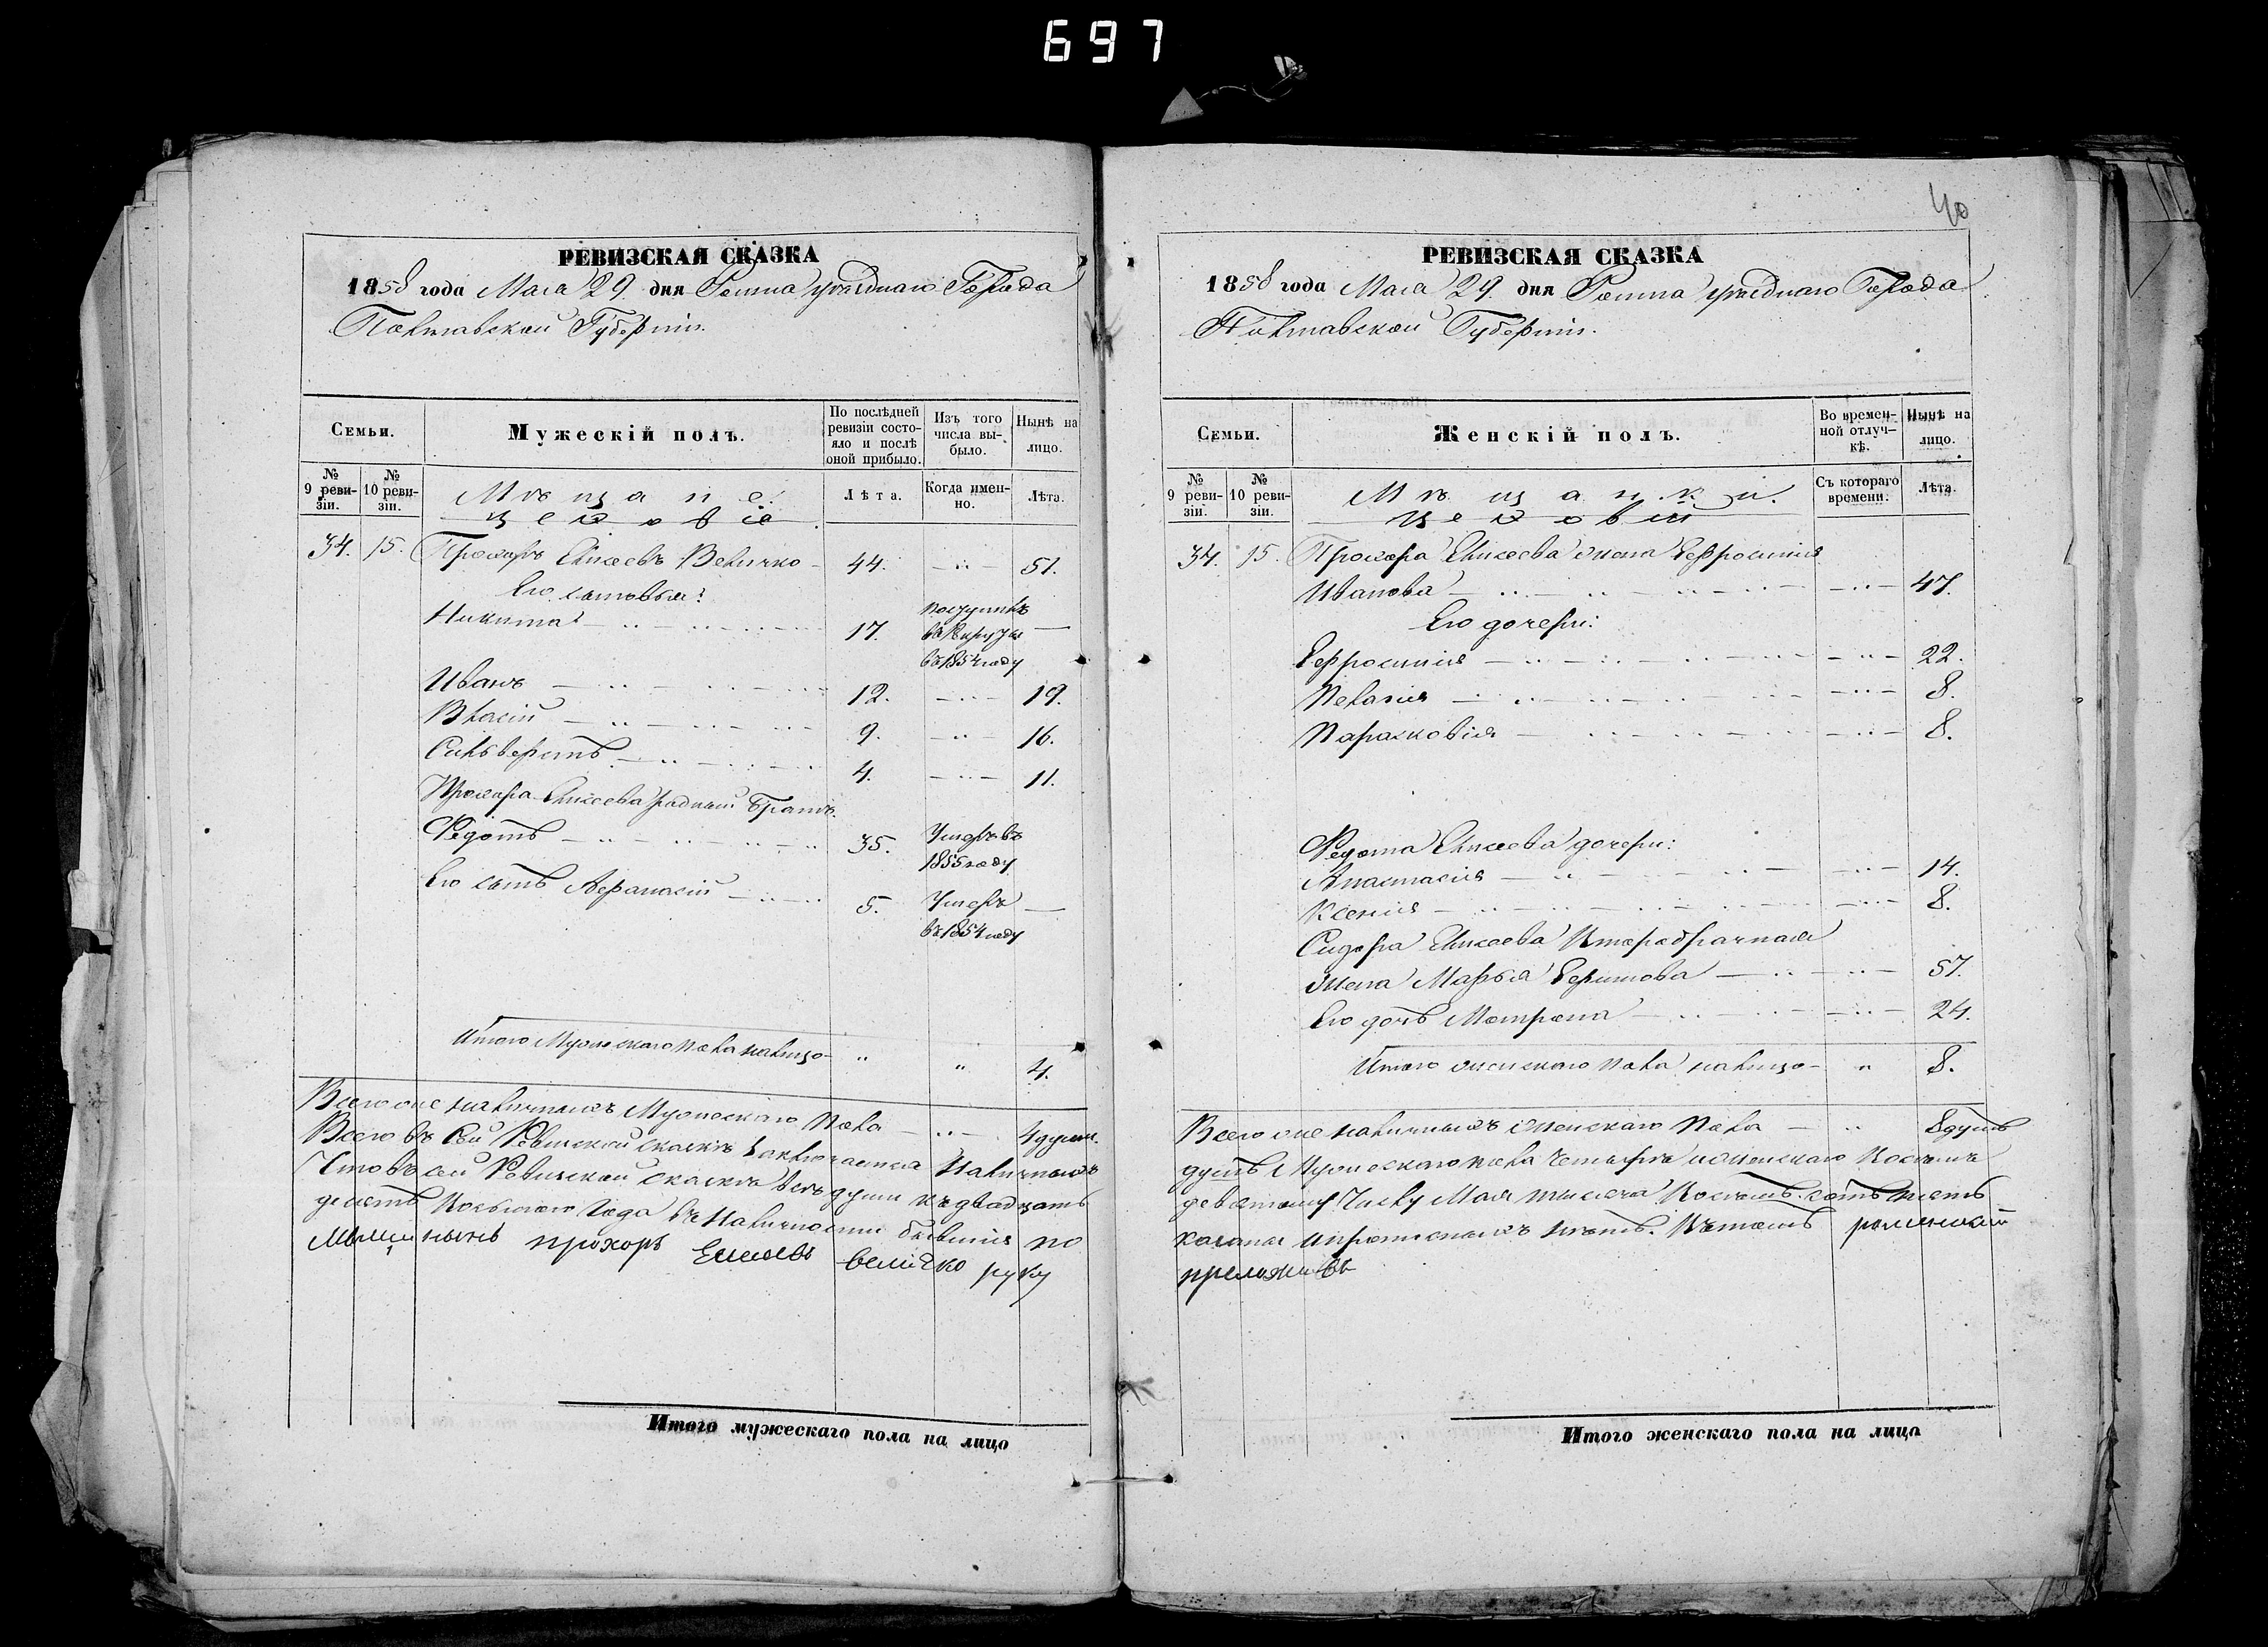 697
РЕВИЗСКАЯ СКАЗКА
1858 года Мая 29. дня Ромна уѣзднаго Города
Полтавской Губерніи.
Семьи.
Мужескій полъ.
По послѣдней ревизіи состояло и послѣ оной прибыло.
Изъ того числа выбыло.
Нынѣ на лицо.
№ 9 ревизіи.
№ 10 ревизіи.
Мѣщане:
цеховіе
Лѣта.
Когда именно.
Лѣта.
34. 15. Прохоръ Елисеевъ Величко 44. 51.
Его сыновья:
Никита 17. поступилъ
въ Рекруты
въ 1854 году
Иванъ 12. 19.
Власій 9. 16.
Сильверстъ 4. 11.
Прохора Елисеева родный братъ.
Федотъ 35. Умеръ въ
1855 году
Его сынъ Афанасій 5. Умеръ
въ 1854 году
Итого Мужескаго пола налицо 4.
Всего же наличныхъ Мужескаго пола 4 души.
Всего въ сей Ревизской сказкѣ заключается Наличныхъ
Что въ сей Ревизской сказкѣ всѣ души къ двадцать
десятъ Восьмаго Года въ Наличности бывшія по
мѣщ прохоръ Елисеевъ величко руку
Итого мужескаго пола на лицо
40
РЕВИЗСКАЯ СКАЗКА
1858 года Мая 29. дня Ромна уѣзднаго Города
Полтавской Губерніи.
Семьи.
Женскій полъ.
Во временной отлучкѣ.
Нынѣ на лицо.
№ 9 ревизіи.
№ 10 ревизіи.
Мѣщанки.
Цеховіи
Съ котораго времени.
Лѣта.
34. 15. Прохора Елисеева жена Ефросинія
Иванова 47.
Его дочери:
Ефросинія 22.
Пелагія 8.
Парасковія 8.
Федота Елисеева дочери:
Анастасія 14.
Ксенія 8.
Сидора Елисеева Второбрачная
жена Марья Ефимова 57.
Его дочь Матрона 24.
Итого женскаго пола налицо 8.
Всего же наличныхъ женскаго пола 8 душъ
душъ Мужескаго пола четыре и женскаго Восемь
девятому Числу Мая тысяча Восемь сотъ пять
казаны и прописныхъ нѣтъ. Въ томъ роменский
преложивъ
Итого женскаго пола на лицо